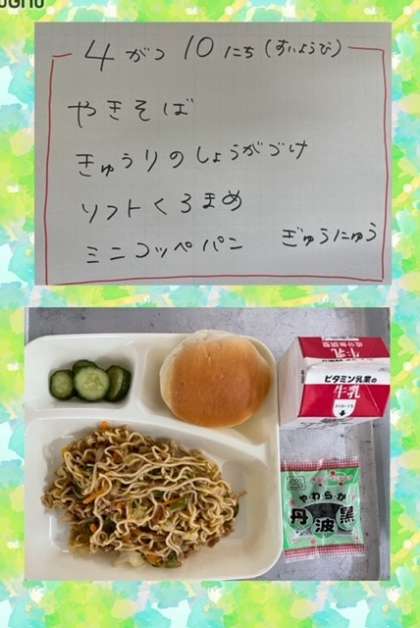 4がつ10にち(すいようび)
やきそば
きゅうりのしょうがづけ
ソフトくろまめ
ミニコッペパン ぎゅうにゅう
牛乳
ビタミン乳業の
牛乳
やわらか
丹波黒